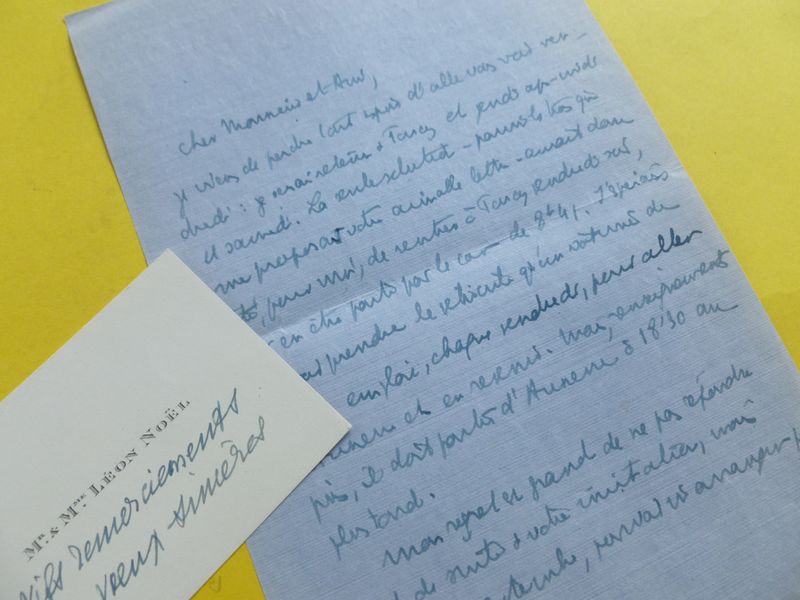 Cher Monsieur et Ami,
je viens de perdre tout espoir d'aller vous voir ven-
dredi : je serai retenu à Toucy et jeudi après-midi
et samedi. La seule solution - parmi celles que
me proposait votre aimable lettre - aurait donc
été, pour moi, de rentrer à Toucy vendredi soir,
en être parti par le car de 8h41. J'espérais
prendre le véhicule qu'un voisin de
emploi, chaque vendredi, pour aller
et en revenir. Mais, renseignement
pris, il doit partir d'Auxerre à 18h30 au
plus tard.
Mon regret est grand de ne pas répondre
de suite à votre invitation, mais
pourrait-on arranger
Mr. & Mme Léon Noël
Vifs remerciements
voeux sincères